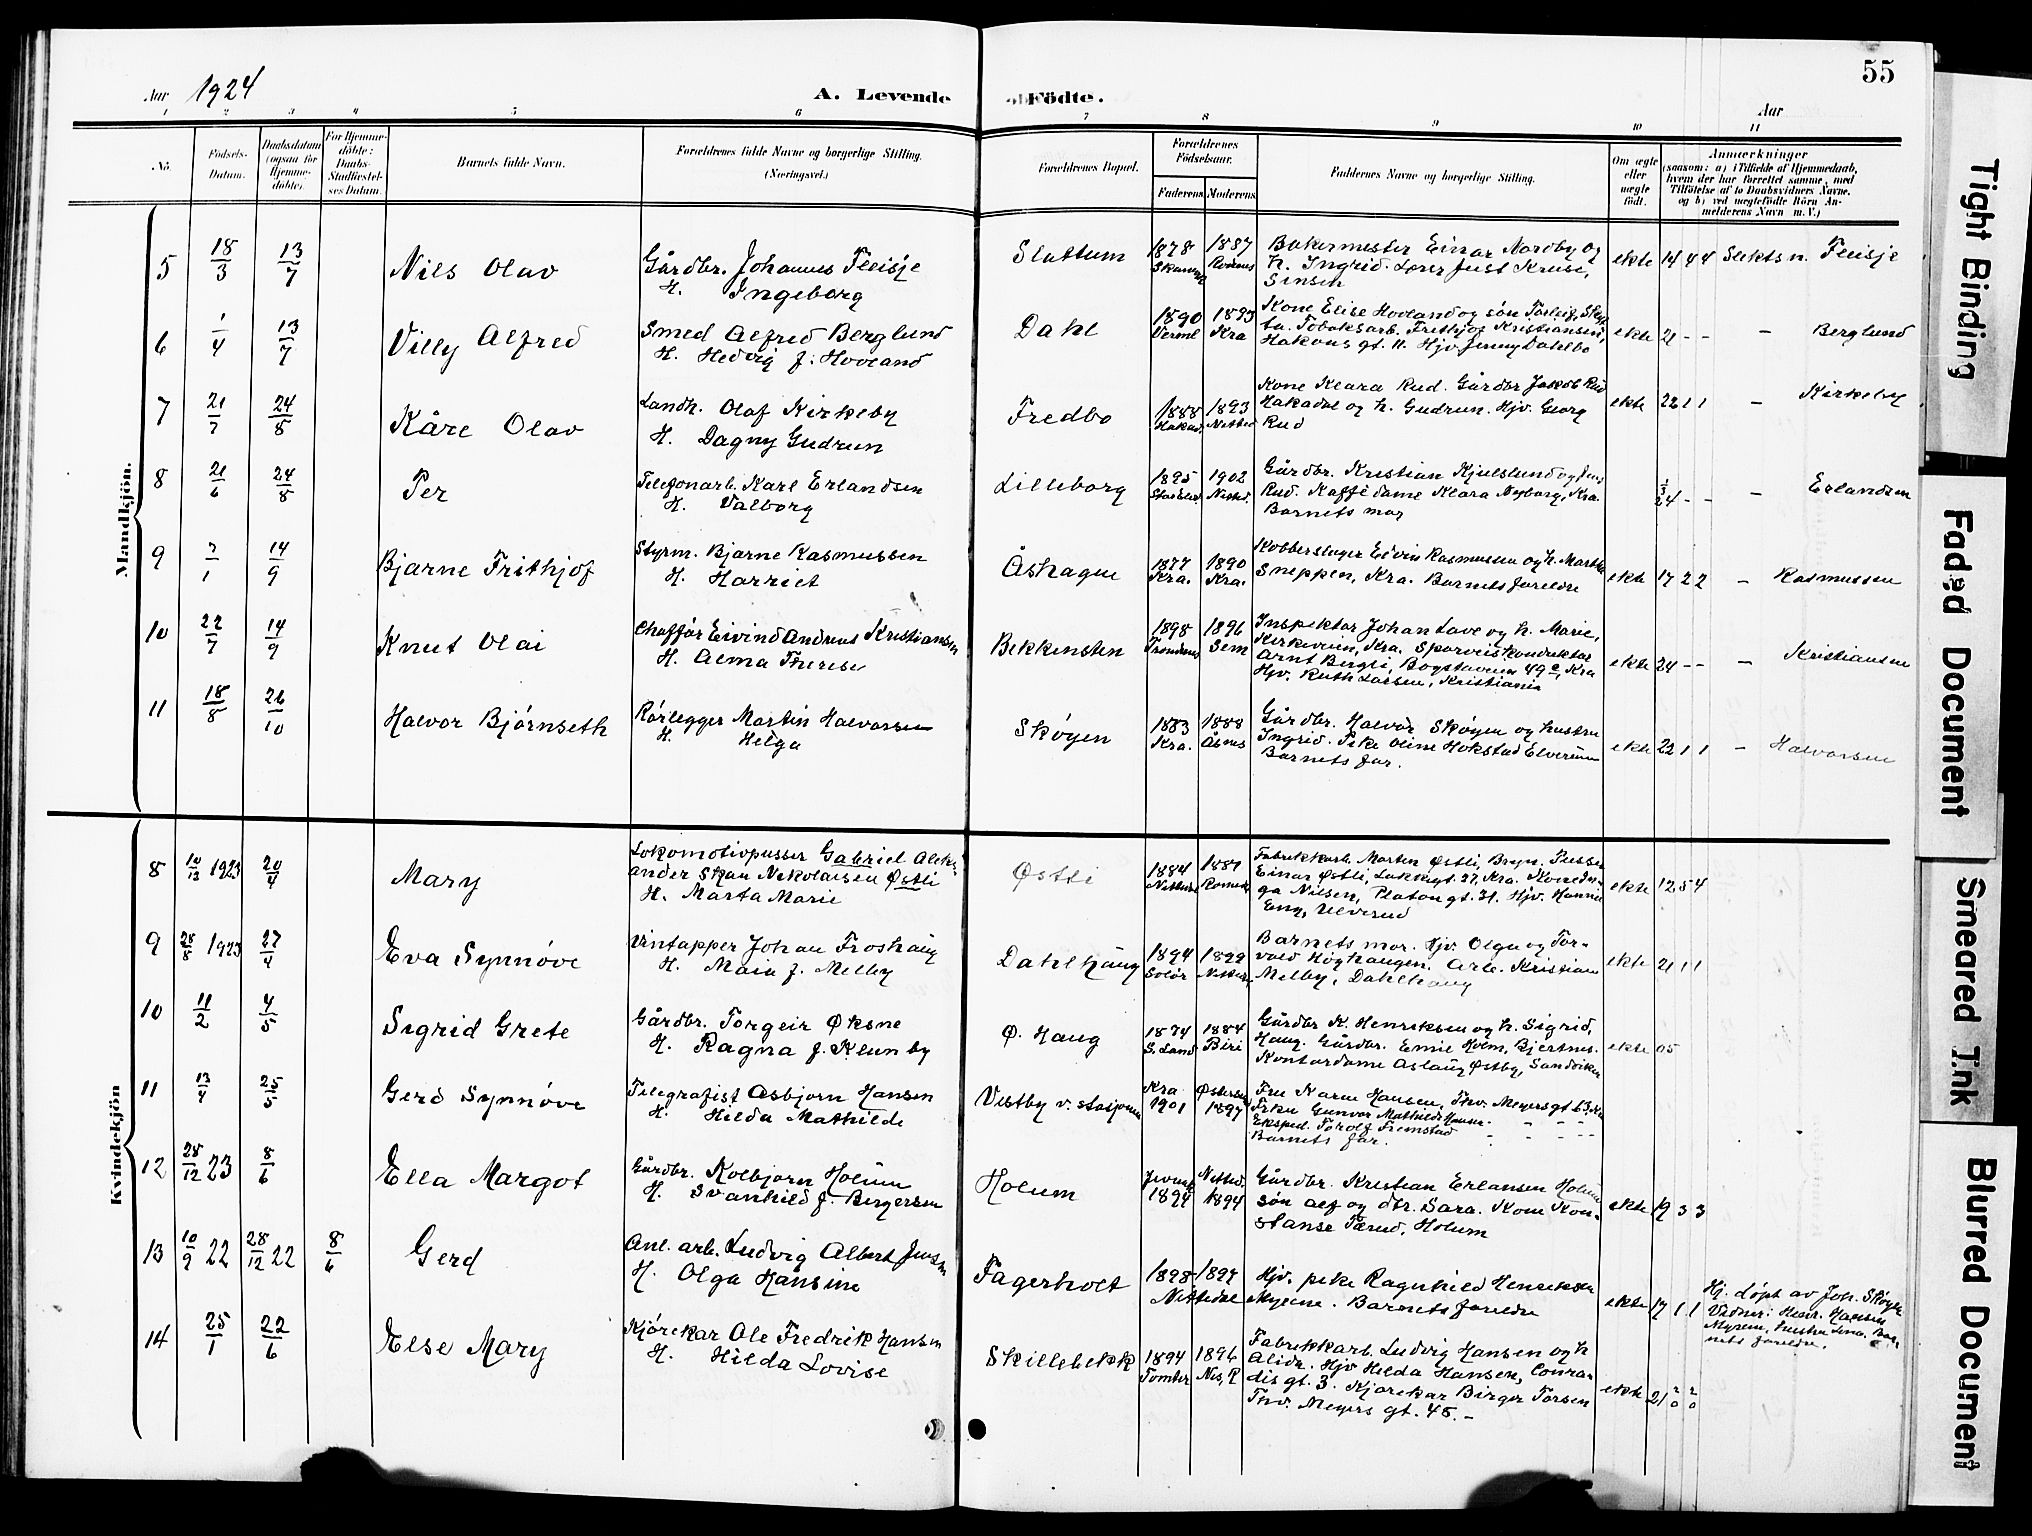 55
Aar 1924
A. Levende Födte.
Aar
1 2 3 4 5 6 7 8 9 10 11
No.
Födsels-Datum.
Daabsdatum (ogsaa for Hjemme-döbte).
For Hjemme-döbte: Daabs-Stadfæstel-ses Datum.
Barnets fulde Navn.
Forældrenes fulde Navne og borgerlige Stilling.
(Næringsvei.)
Forældrenes Bopæl.
Forældrenes Födselsaar.
Faderens Moderens
Faddernes Navne og borgerlige Stilling.
Om ægte eller uægte födt.
Anmærkninger
(saasom: a) i Tilfælde af Hjemmedaab,
hvem der har forrettet samme, med
Tilföielse af to Daabsvidners Navne,
og b) ved uægtefödte Börn An-
melderens Navn m. V.)
Mandkjön.
5 18/3 13/7 Nils Olav
Gårdbr. Johannes Fleisje
H. Ingeborg
Slattum 1878 1887
Bakermester Einar Nordby og
h. Ingrid.
ekte 14 4 4 Slektsn. Fleisje
6 1/4 13/7 Villy Alfred
Smed Alfred Berglund
H. Hedvig f. Hovland
Dahl 1890 1893
Verml Kra
Kone Elise Hovland og søn
Tobaksarb. Frithjof Kristiansen,
Hakons gt. 11. Hjv. Jenny Dahlbo
ekte 21 - - - Berglund
7 21/7 24/8 Kåre Olav
Landh. Olaf Kirkeby
H. Dagny Gudrun
Fredbo 1888 1893
Kone Klara Rud. Gårdbr Jakob Rud
Hakadal og h. Gudrun. Hjv. Georg
Rud
ekte 22 1 1 - Kirkeby
8 21/6 24/8 Per
Telefonarb. Karl Erlandsen
H. Valborg
Lilleborg 1895 1902
Gårdbr. Kristian Kjulslund og
Rud. Kaffédame Klara Nyborg, Kra.
Barnets mor
24 - - - Erlandsen
9 7/1 14/9 Bjarne Frithjof
Styrm. Bjarne Rasmussen
H. Harriet
Åshagen 1877 1890
Kra. Kra.
Kobberslager Eivin Rasmussen og h. Martha
Sneppen, Kra. Barnets foreldre
ekte 17 2 2 - Rasmussen
10 22/7 14/9 Knut Olai
Chaffør Eivind Andreas Kristiansen
H. Alma Therese
Bekkensten 1898 1896
Sem
Inspektør Johan Love og h. Marie,
Kirkeveien, Kra. Sporveiskonduktør
Arnt Bergli, Bogstadveien 49 c, Kra
Hjv. Ruth Larsen, Kristiania
ekte 24 - - - Kristiansen
11 18/8 26/10 Halvor Bjørnseth
Rørlegger Martin Halvorsen
H. Helga
Skøyen 1883 1888
Kra. Åsnes
Gårdbr. Halvor Skøyen og hustru
Ingrid. Pike Oline Hokstad Elverum
Barnets far.
ekte 22 1 1 - Halvorsen
Kvindekjön
8 10/12 1923 20/4 Mary
Lokomotivpusser Gabriel Aleks-
ander Skau Nikolaisen Østli
H. Marta Marie
Østli 1884 1887
Fabrikkarb. Morten Østli, Bryn.
Einar Østli, Lakkegt. 27, Kra.
ga Nilsen, Platougt. 31. Hjv. Hanna
Eng, Ulverud
ekte 12 5 4
9 28/8 1923 27/4 Eva Synnøve
Vintapper Johan Froshaug
H. Maia f. Melby
Dahlhaug 1894 1899
Solør
Barnets mor. Hjv. Olga og Tor-
vald Høghaugen. Arb. Kristian
Melby, Dahlhaug
ekte 21 1 1
10 11/2 4/5 Sigrid Grete
Gårdbr. Torgeir Øksne
H. Ragna f. Klunby
Ø. Haug 1874 1884
S. Land Biri
Gårdbr K. Henriksen og h. Sigrid,
Haug. Gårdbr. Emil Holm, Bjertnes.
Kontordame Aslaug Østby, Sandviken
ekte 05
11 13/4 25/5 Gerd Synnøve
Telegrafist Asbjørn Hansen
H. Hilda Mathilde
Vestby v. stasjonen Kra
1901 1897
Fru Karen Hansen, Thv. Meyersgt 63, Kra
Frkn Gunvor Mathilde Hansen - - -
Eksped. Torolf Fremstad - - - -
Barnets far.
12 28/12 23 8/6 Ella Margot
Gårdbr. Kolbjørn Holum
H. Svanhild f. Bergersen
Holum
1894 1894
Gårdbr. Kristian Erlansen Holum
søn Alf og dtr. Sara. Kone Kon-
stanse Tærud, Holum
ekte 19 3 3
13 10/9 22 28/12 22 8/6 Gerd
Anl. arb. Ludvig Albert Jensen
H. Olga Hansine
Fagerholt 1898 1897
Nittedal
Hjv. pike Ragnhild Henriksen
Myrene. Barnets foreldre
ekte 17 1 1
Hj. døpt av Joh. Skøyen
Vidner: Henr. Hansen
Myren, hustru Lina. Bar-
nets foreldre.
14 25/1 22/6 Else Mary
Kjørekar Ole Fredrik Hansen
H. Hilda Lovise
Skillebekk 1894 1896
Fabrikkarb. Ludvig Hansen og h
Alida. Hjv Hilda Hansen, Conra-
disgt. 3. Kjørekar Birger Torsen
Thv. Meyers gt. 45. -
ekte 21
Tight Binding
Faded Document
Smeared Ink
Blurred Document